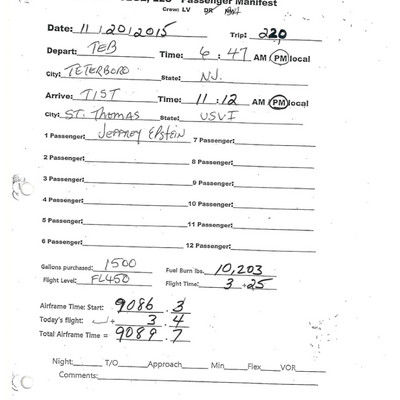 Passenger Manifest
Crew: LV DR
Date: 11/20/2015 Trip: 220
Depart: TEB Time: 6:47 AM PM local
City: TETERBORO State: NJ.
Arrive: TIST Time: 11:12 AM PM local
City: ST. THOMAS State: USVI
1 Passenger: JEFFREY EPSTEIN 7 Passenger:
2 Passenger: 8 Passenger:
3 Passenger: 9 Passenger:
4 Passenger: 10 Passenger:
5 Passenger: 11 Passenger:
6 Passenger: 12 Passenger:
Gallons purchased: 1500 Fuel Burn lbs. 10,203
Flight Level: FL450 Flight Time: 3+25
Airframe Time: Start: 9086.3
Today's flight: + 3.4
Total Airframe Time = 9089.7
Night: T/O Approach Min Flex VOR
Comments: